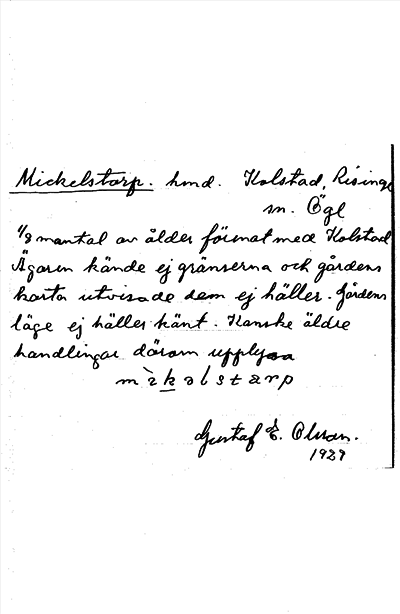 Mickelstorp. hmd. Kolstad, Risinge
sn. Ögl
1/8 mantal av ålder förenat med Kolstad
Ägaren kände ej gränserna och gårdens
karta utvisade dem ej häller. Gårdens
läge ej häller känt. Kanske äldre
handlingar därom upplysa
mìkəlstarp
Gustaf E. Olsson.
1929